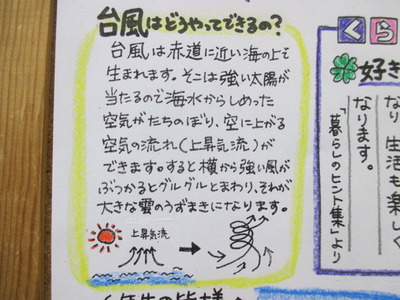 台風はどうやってできるの?
台風は赤道に近い海の上で
生まれます。そこは強い太陽が
当たるので海水からしめった
空気がたちのぼり、空に上がる
空気の流れ(上昇気流)が
できます。すると横から強い風が
ぶつかるとグルグルとまわり、それが
大きな雲のうずまきになります。
上昇気流
くら
好き
なり 生活も楽しく
なります。
「暮らしのヒント集」より
年生の皆様